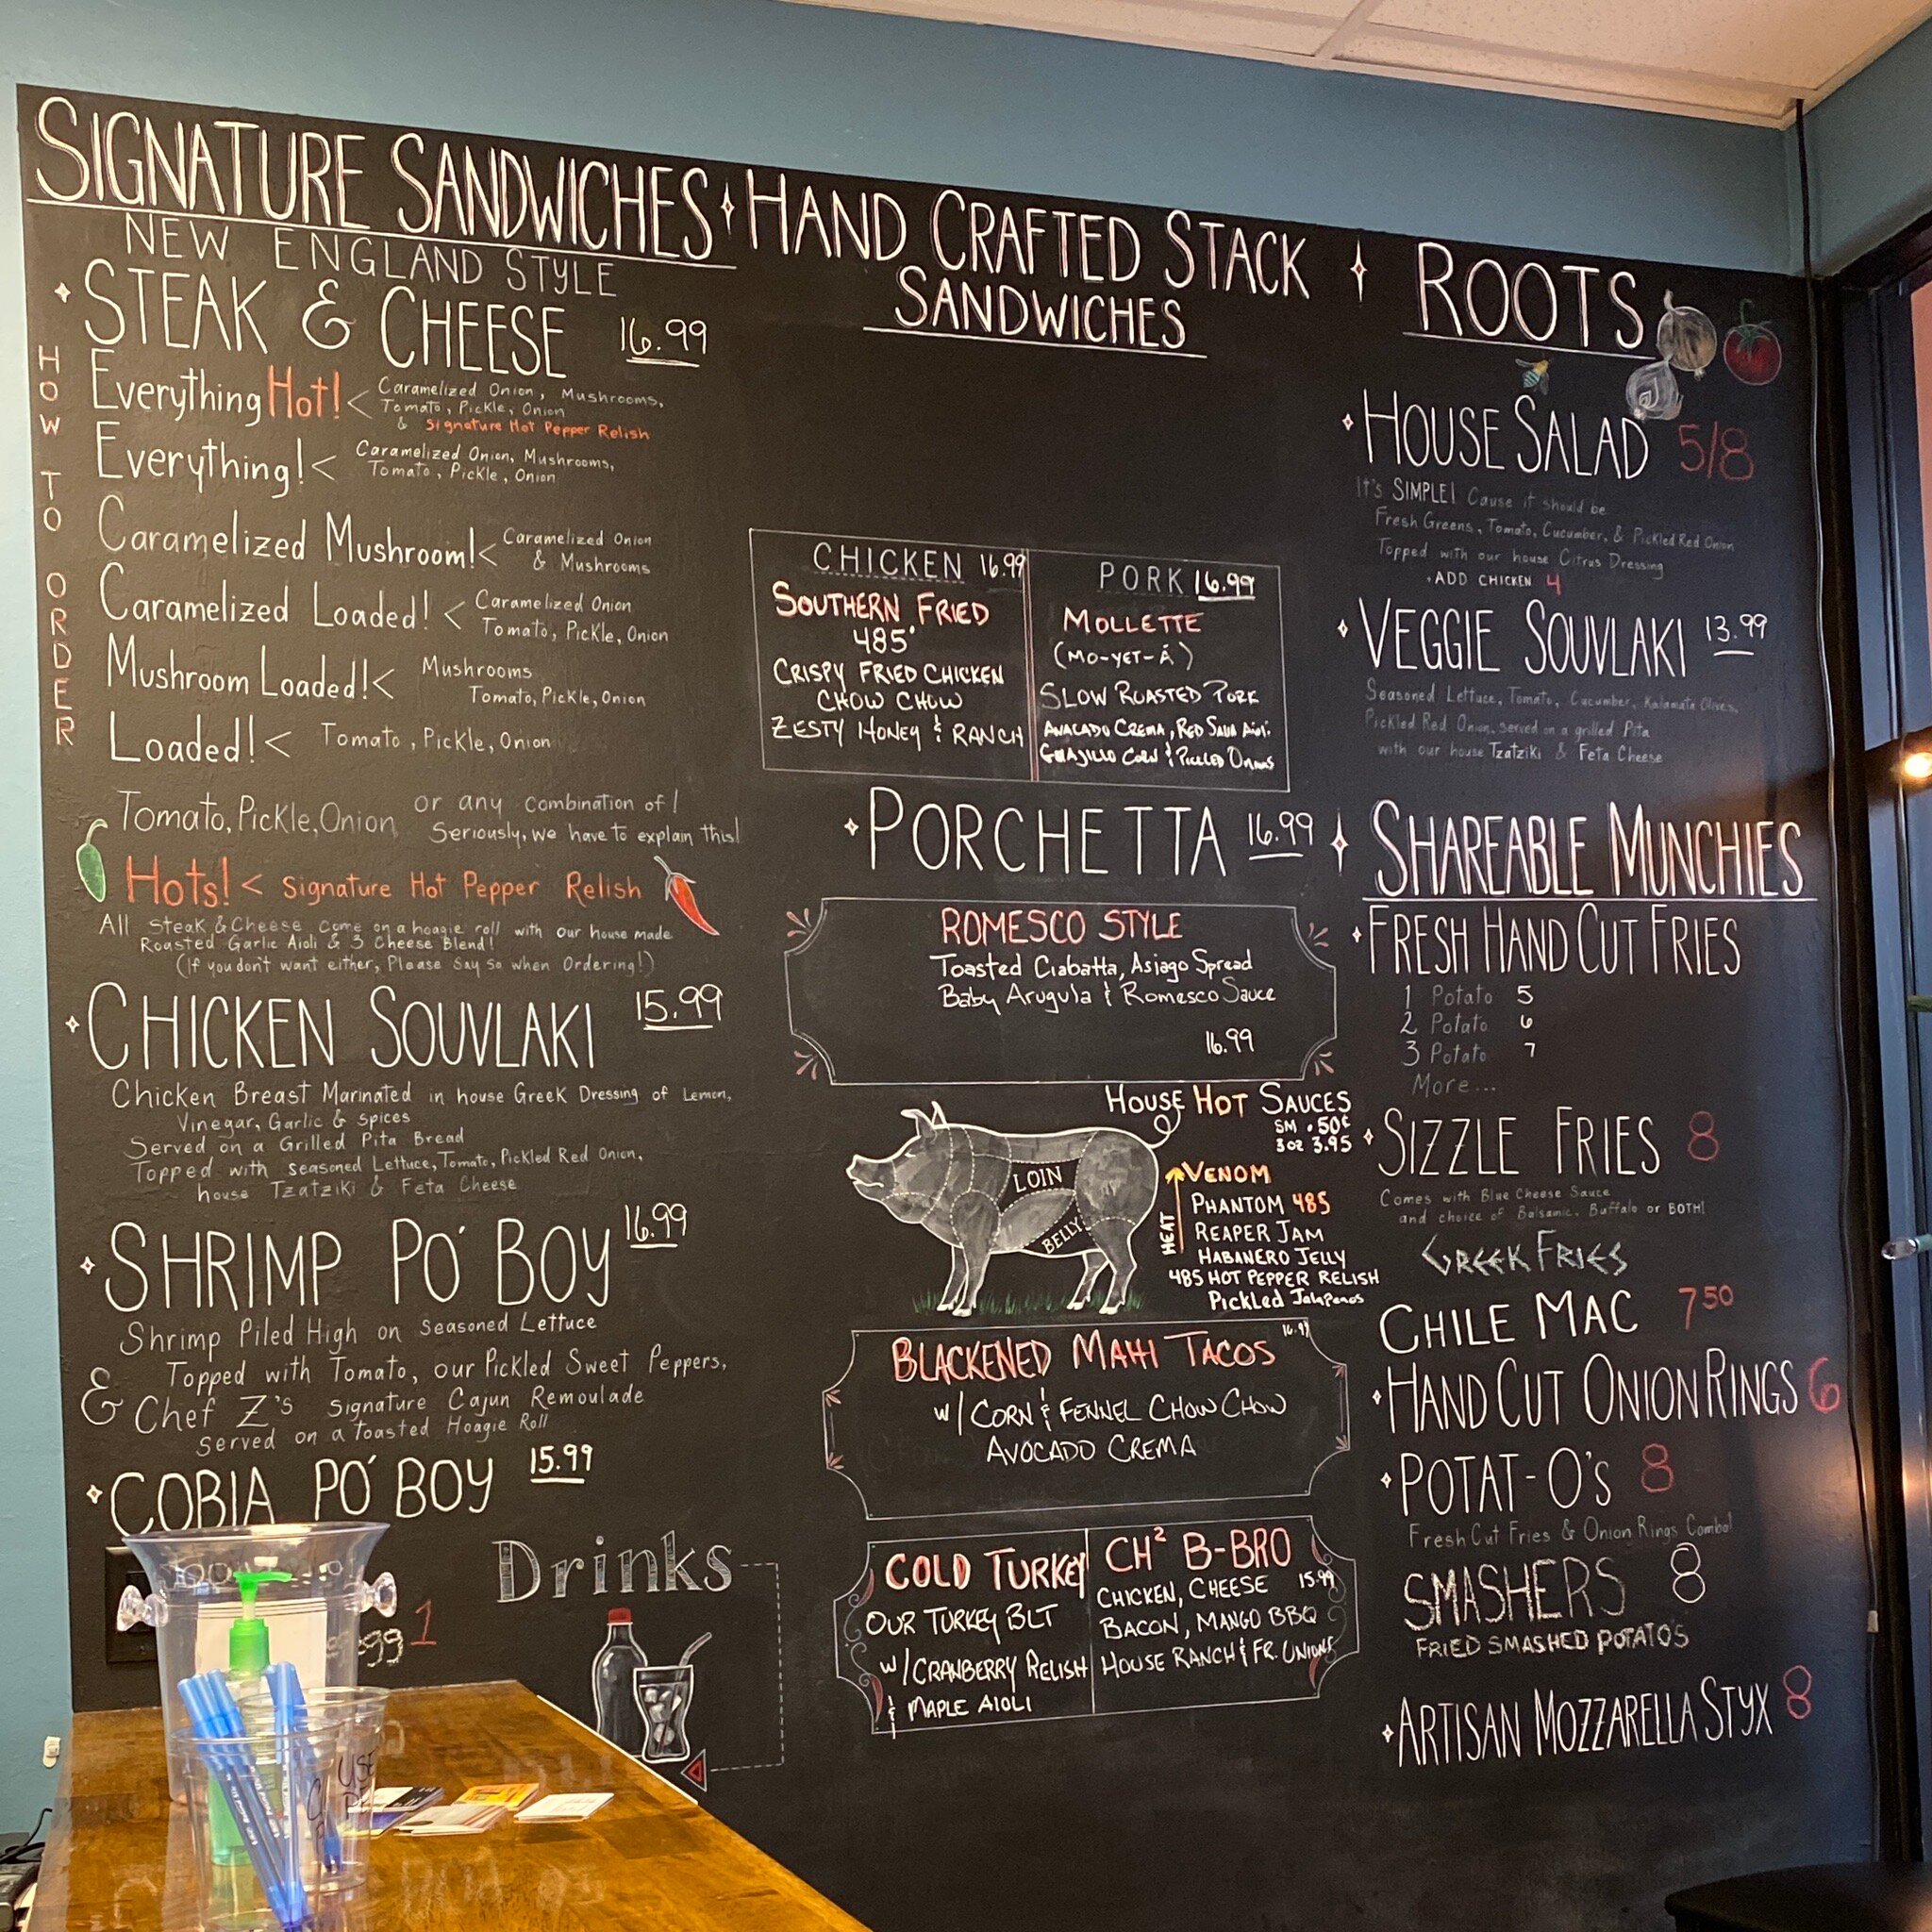 SIGNATURE SANDWICHES
NEW ENGLAND STYLE
STEAK & CHEESE 16.99
HOW TO ORDER
Everything Hot! < Caramelized Onion, Mushrooms,
Tomato, Pickle, Onion
& Signature Hot Pepper Relish
Everything! < Caramelized Onion, Mushrooms,
Tomato, Pickle, Onion
Caramelized Mushroom! < Caramelized Onion
& Mushrooms
Caramelized Loaded! < Caramelized Onion
Tomato, Pickle, Onion
Mushroom Loaded! < Mushrooms
Tomato, Pickle, Onion
Loaded! < Tomato, Pickle, Onion
Tomato, Pickle, Onion or any combination of!
Seriously, we have to explain this!
Hots! < Signature Hot Pepper Relish
All Steak & Cheese come on a hoagie roll with our house made
Roasted Garlic Aioli & 3 Cheese Blend!
(If you don't want either, Please Say So when Ordering!)
CHICKEN SOUVLAKI 15.99
Chicken Breast Marinated in house Greek Dressing of Lemon,
Vinegar, Garlic & Spices
Served on a Grilled Pita Bread
Topped with seasoned Lettuce, Tomato, Pickled Red Onion,
house Tzatziki & Feta Cheese
SHRIMP PO' BOY 16.99
Shrimp Piled High on Seasoned Lettuce
Topped with Tomato, our Pickled Sweet Peppers,
& Chef Z's Signature Cajun Remoulade
Served on a Toasted Hoagie Roll
COBIA PO' BOY 15.99
99 1
Drinks
HAND CRAFTED STACK
SANDWICHES
CHICKEN 16.99
SOUTHERN FRIED
485°
CRISPY FRIED CHICKEN
CHOW CHOW
ZESTY HONEY & RANCH
PORK 16.99
MOLLETTE
(MO-YET-Á)
SLOW ROASTED PORK
AVACADO CREMA, RED SAUA AIOI.
GUAJILLO CORN & PICKLED ONIONS
PORCHETTA 16.99
ROMESCO STYLE
Toasted Ciabatta, Asiago Spread
Baby Arugula & Romesco Sauce
16.99
HOUSE HOT SAUCES
SM .50¢
3oz 3.95
LOIN
BELLY
HEAT
VENOM
PHANTOM 485
REAPER JAM
HABANERO JELLY
485 HOT PEPPER RELISH
Pickled Jalapenos
BLACKENED MAHI TACOS 16.99
W/ CORN & FENNEL CHOW CHOW
AVOCADO CREMA
COLD TURKEY
OUR TURKEY BLT
W/ CRANBERRY RELISH
& MAPLE AIOLI
CH² B-BRO
CHICKEN, CHEESE 15.99
BACON, MANGO BBQ
HOUSE RANCH & FR. ONIONS
ROOTS
HOUSE SALAD 5/8
It's SIMPLE! Cause it should be
Fresh Greens, Tomato, Cucumber, & Pickled Red Onion
Topped with our house Citrus Dressing
+ADD CHICKEN 4
VEGGIE SOUVLAKI 13.99
Seasoned Lettuce, Tomato, Cucumber, Kalamata Olives,
Pickled Red Onion, served on a grilled Pita
with our house Tzatziki & Feta Cheese
SHAREABLE MUNCHIES
FRESH HAND CUT FRIES
1 Potato 5
2 Potato 6
3 Potato 7
More...
SIZZLE FRIES 8
Comes with Blue Cheese Sauce
and choice of Balsamic, Buffalo or BOTH!
GREEK FRIES
CHILE MAC 7 50
HAND CUT ONION RINGS 6
POTAT-O'S 8
Fresh Cut Fries & Onion Rings Combo!
SMASHERS 8
FRIED SMASHED POTATOS
ARTISAN MOZZARELLA STYX 8
USE